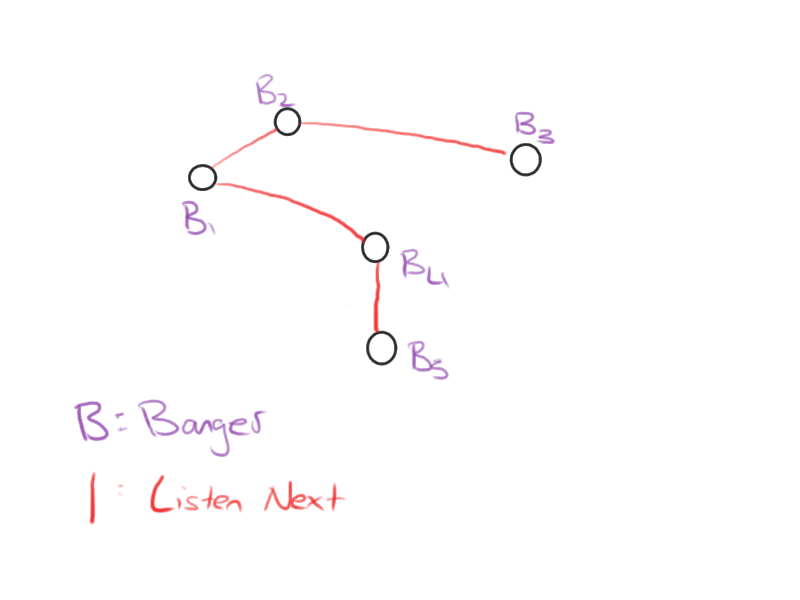 B2
B3
B1
B4
B5
B: Banger
|: Listen Next